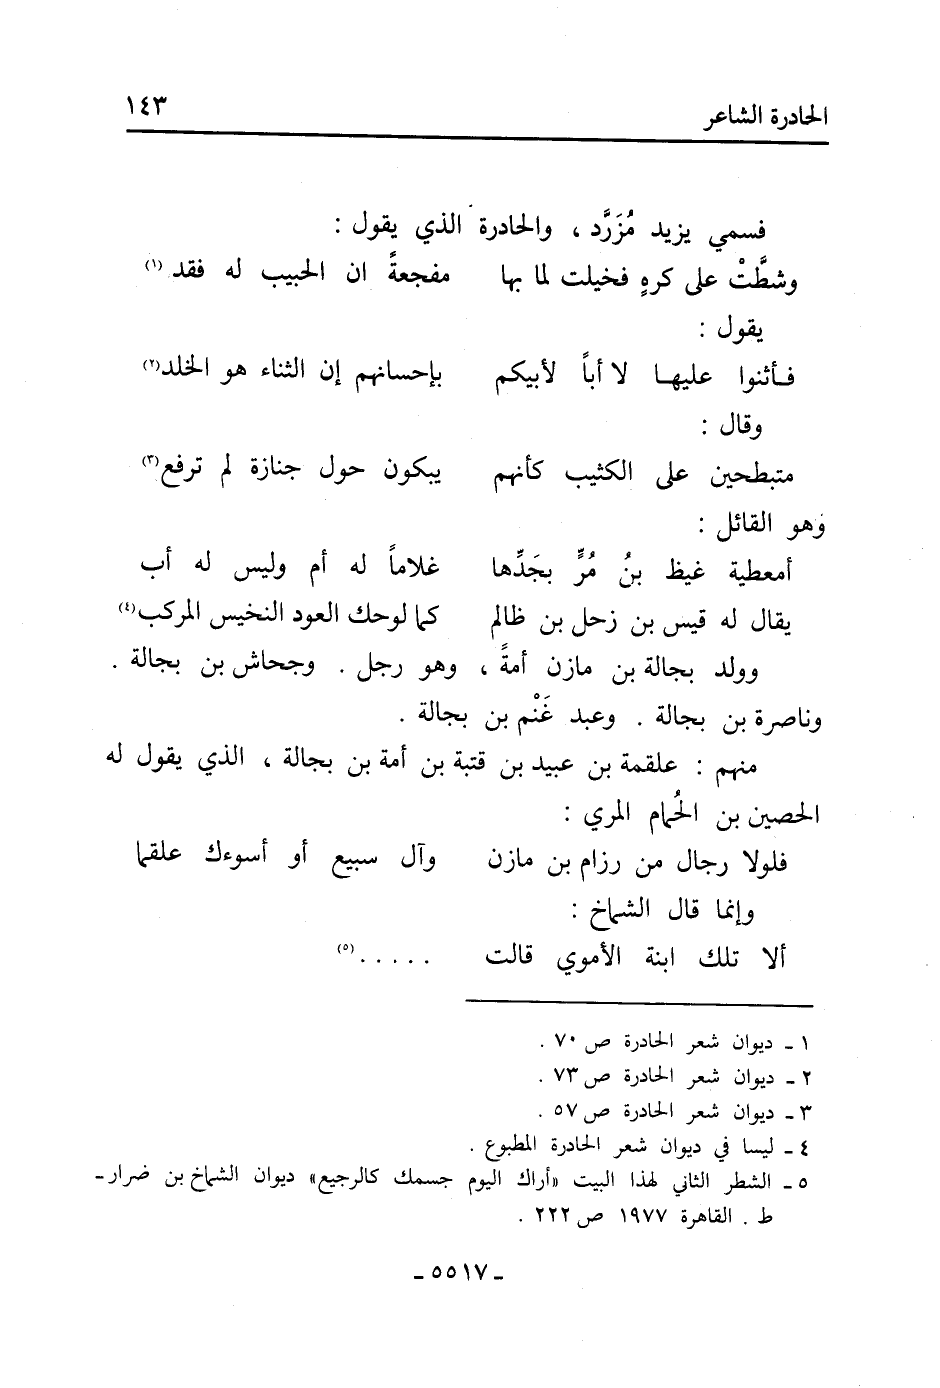 الحادرة الشاعر ١٤٣
فسمي يزيد مُزَرَّد ، والحادرة الذي يقول :
وشطَّتْ على كرهٍ فخيلت لما بها مفجعةً ان الحبيب له فقد (١)
يقول :
فأثنوا عليها لا أباً لأبيكم بإحسانهم إن الثناء هو الخلد(٢)
وقال :
متبطحين على الكثيب كأنهم يبكون حول جنازة لم ترفع(٣)
وهو القائل :
أمعطية غيظ بنُ مُرٍّ بجَدِّها غلاماً له أم وليس له أب
يقال له قيس بن زحل بن ظالم كما لوحك العود النخيس المركب(٤)
وولد بجالة بن مازن أمةً ، وهو رجل . وجحاش بن بجالة .
وناصرة بن بجالة . وعبد غَنْم بن بجالة .
منهم : علقمة بن عبيد بن قتبة بن أمة بن بجالة ، الذي يقول له
الحصين بن الحُمام المري :
فلولا رجال من رزام بن مازن وآل سبيع أو أسوءك علقما
وإنما قال الشماخ :
ألا تلك ابنة الأموي قالت . . . . .(٥)
١ ـ ديوان شعر الحادرة ص ٧٠ .
٢ ـ ديوان شعر الحادرة ص ٧٣ .
٣ ـ ديوان شعر الحادرة ص ٥٧ .
٤ ـ ليسا في ديوان شعر الحادرة المطبوع .
٥ ـ الشطر الثاني لهذا البيت «أراك اليوم جسمك كالرجيع» ديوان الشماخ بن ضرار ـ
ط . القاهرة ١٩٧٧ ص ٢٢٢ .
ـ ٥٥١٧ ـ